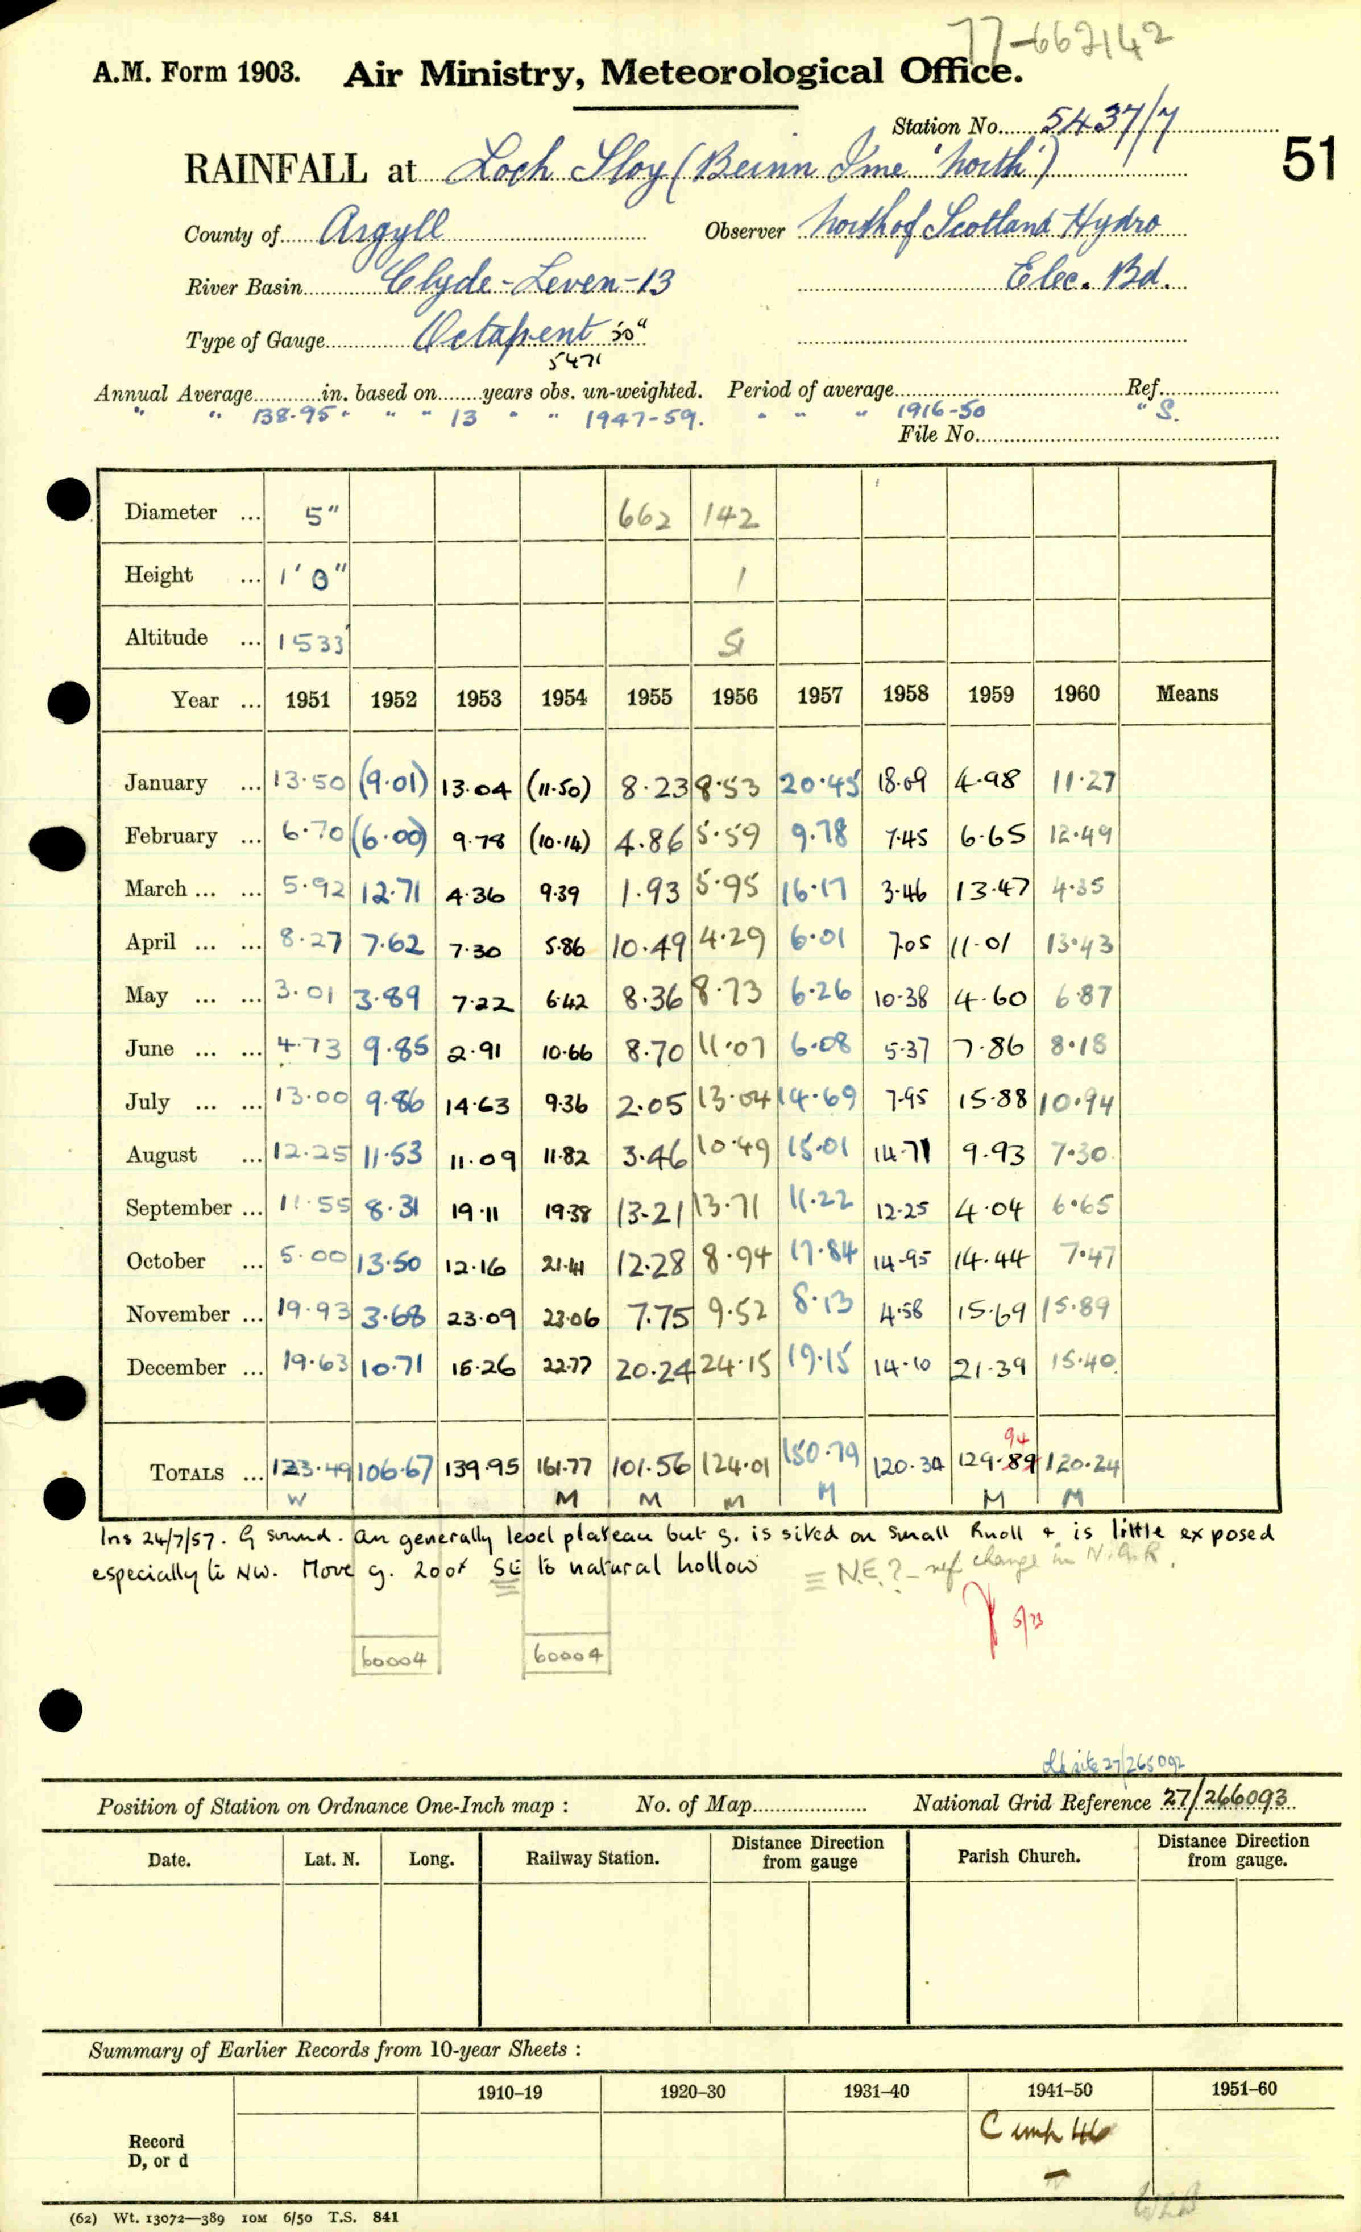 77-662142
A.M. Form 1903. Air Ministry, Meteorological Office.
Station No. 5437/7
RAINFALL at Loch Sloy (Beinn Ime 'North')
51
County of Argyll Observer North of Scotland Hydro
River Basin Clyde-Leven-13 Elec. Bd.
Type of Gauge Octapent 30"
5471
Annual Average in. based on years obs. un-weighted. Period of average Ref.
" " 138.95 " " " 13 " " 1947-59. " " " 1916-50 " S.
File No.
Diameter ... 5" 662 142
Height ... 1' 0" 1
Altitude ... 1533' S1
Year ... 1951 1952 1953 1954 1955 1956 1957 1958 1959 1960 Means
January ... 13.50 (9.01) 13.04 (11.50) 8.23 8.53 20.45 18.09 4.98 11.27
February ... 6.70 (6.00) 9.78 (10.14) 4.86 5.59 9.78 7.45 6.65 12.49
March ... ... 5.92 12.71 4.36 9.39 1.93 5.95 16.17 3.46 13.47 4.35
April ... ... 8.27 7.62 7.30 5.86 10.49 4.29 6.01 7.05 11.01 13.43
May ... ... 3.01 3.89 7.22 6.42 8.36 8.73 6.26 10.38 4.60 6.87
June ... ... 4.73 9.85 2.91 10.66 8.70 11.07 6.08 5.37 7.86 8.18
July ... ... 13.00 9.86 14.63 9.36 2.05 13.04 14.69 7.95 15.88 10.94
August ... 12.25 11.53 11.09 11.82 3.46 10.49 15.01 14.71 9.93 7.30
September ... 11.55 8.31 19.11 19.38 13.21 13.71 11.22 12.25 4.04 6.65
October ... 5.00 13.50 12.16 21.41 12.28 8.94 17.84 14.95 14.44 7.47
November ... 19.93 3.68 23.09 23.06 7.75 9.52 8.13 4.58 15.69 15.89
December ... 19.63 10.71 15.26 22.77 20.24 24.15 19.15 14.10 21.39 15.40
94
TOTALS ... 123.49 106.67 139.95 161.77 101.56 124.01 150.79 120.34 129.89 120.24
W M M M M M M
Ins 24/7/57. G sound. On generally level plateau but g. is sited on small knoll & is little exposed
especially to NW. Move g. 200x SE to natural hollow = N.E.? - ref change in N.G.R.
5/73
60004 60004
Old site 27/265092
Position of Station on Ordnance One-Inch map : No. of Map National Grid Reference 27/266093
Date. Lat. N. Long. Railway Station. Distance from gauge Direction Parish Church. Distance from gauge. Direction
Summary of Earlier Records from 10-year Sheets :
1910-19 1920-30 1931-40 1941-50 1951-60
Record
D, or d
C imp 46
(62) Wt. 13072—389 10M 6/50 T.S. 841